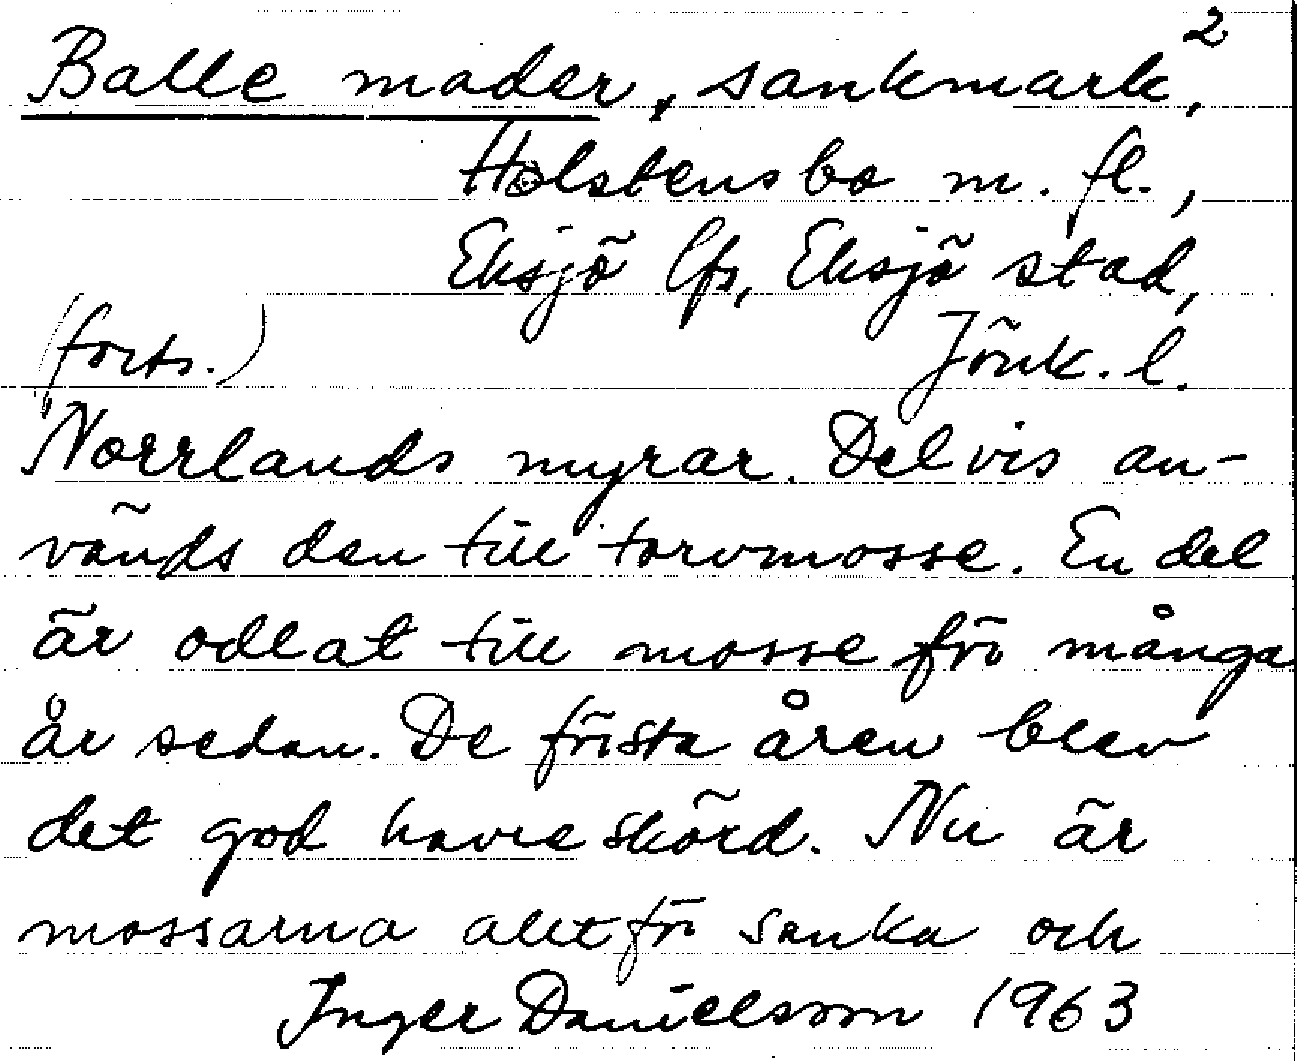 Balle mader, sankmark, 2
Holstensbo m. fl.,
Eksjö lfs, Eksjö stad,
(forts.) Jönk. l.
Norrlands myrar. Delvis an-
vänds den till torvmosse. En del
är odlat till mosse för många
år sedan. De första åren blev
det god havreskörd. Nu är
mossarna allt för sanka och
Inger Danielsson 1963